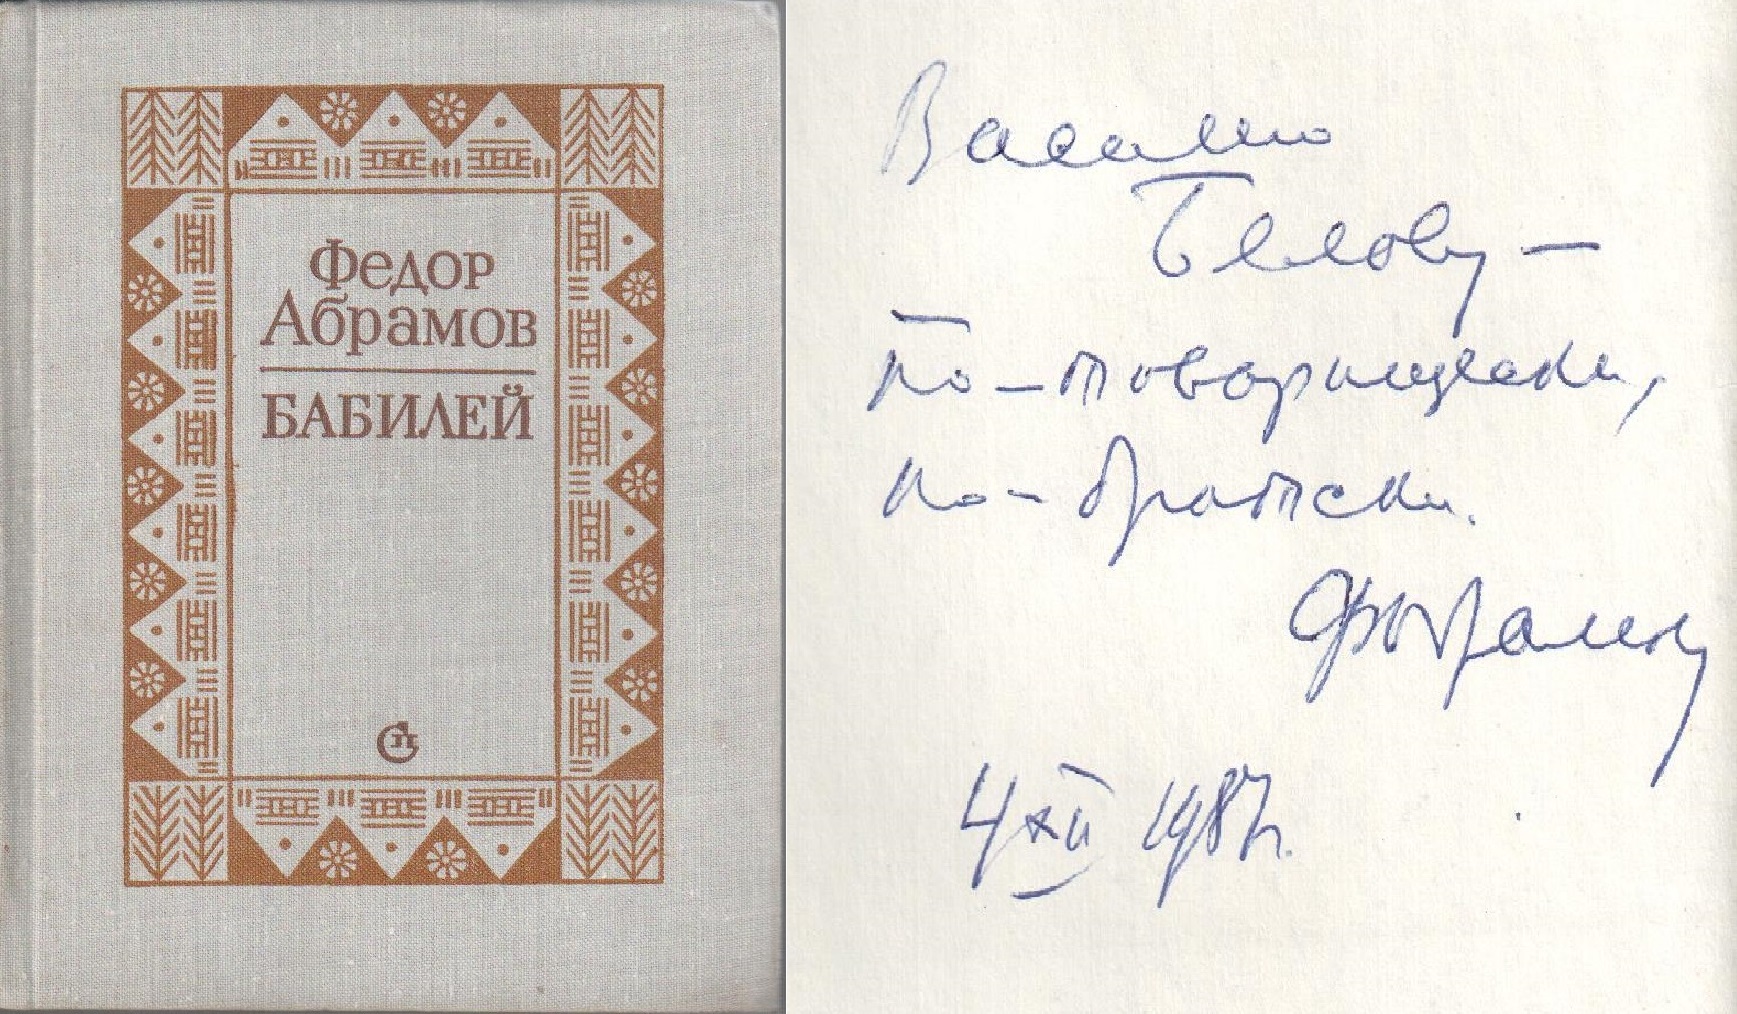 Федор
Абрамов
БАБИЛЕЙ
Василию
Белову —
по-товарищески,
по-братски.
ФАбрамов
4 XII 1981г.